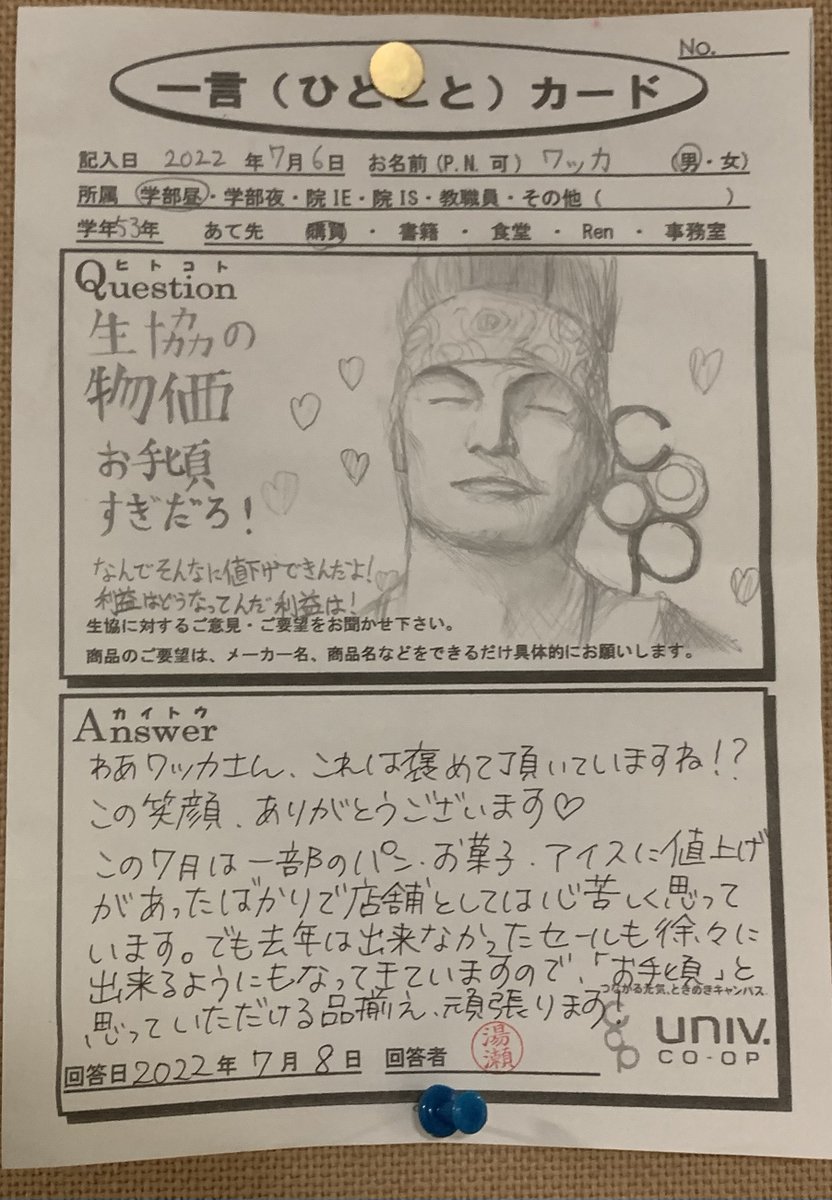 No.
一言（ひとこと）カード
記入日 2022 年 7月 6日 お名前(P.N.可) ワッカ (男・女)
所属 学部昼・学部夜・院IE・院IS・教職員・その他（ ）
学年53年 あて先 購買 ・ 書籍 ・ 食堂 ・ Ren ・ 事務室
ヒトコト
Question
生協の
物価
お手頃
すぎだろ！
なんでそんなに値下げできんだよ！
利益はどうなってんだ利益は！
coop
生協に対するご意見・ご要望をお聞かせ下さい。
商品のご要望は、メーカー名、商品名などをできるだけ具体的にお願いします。
カイトウ
Answer
わあワッカさん、これは褒めて頂いていますね！？
この笑顔、ありがとうございます♡
この7月は一部のパン・お菓子・アイスに値上げ
があったばかりで店舗としては心苦しく思って
います。でも去年は出来なかったセールも徐々に
出来るようにもなってきていますので、「お手頃」と
思っていただける品揃え、頑張ります！
つながる元気、ときめきキャンパス。
coop UNIV.
CO-OP
回答日 2022年 7月 8日 回答者 湯瀬